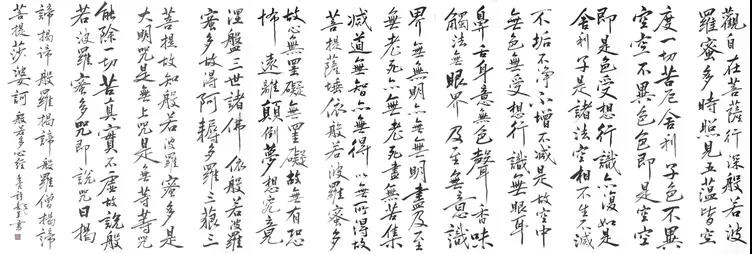 觀自在菩薩行深般若波
羅蜜多時照見五蘊皆空
度一切苦厄舍利子色不異
空空不異色色即是空空
即是色受想行識亦復如是
舍利子是諸法空相不生不滅
不垢不淨不增不減是故空中
無色無受想行識無眼耳
鼻舌身意無色聲香味
觸法無眼界乃至無意識
界無無明亦無無明盡乃至
無老死亦無老死盡無苦集
滅道無智亦無得以無所得故
菩提薩埵依般若波羅蜜多
故心無罣礙無罣礙故無有恐
怖遠離顛倒夢想究竟
涅盤三世諸佛依般若波羅
蜜多故得阿耨多羅三藐三
菩提故知般若波羅蜜多是
大明咒是無上咒是無等等咒
能除一切苦真實不虛故說般
若波羅蜜多咒即說咒曰揭
諦揭諦般羅揭諦般羅僧揭諦
菩提莎婆訶 般若多心經